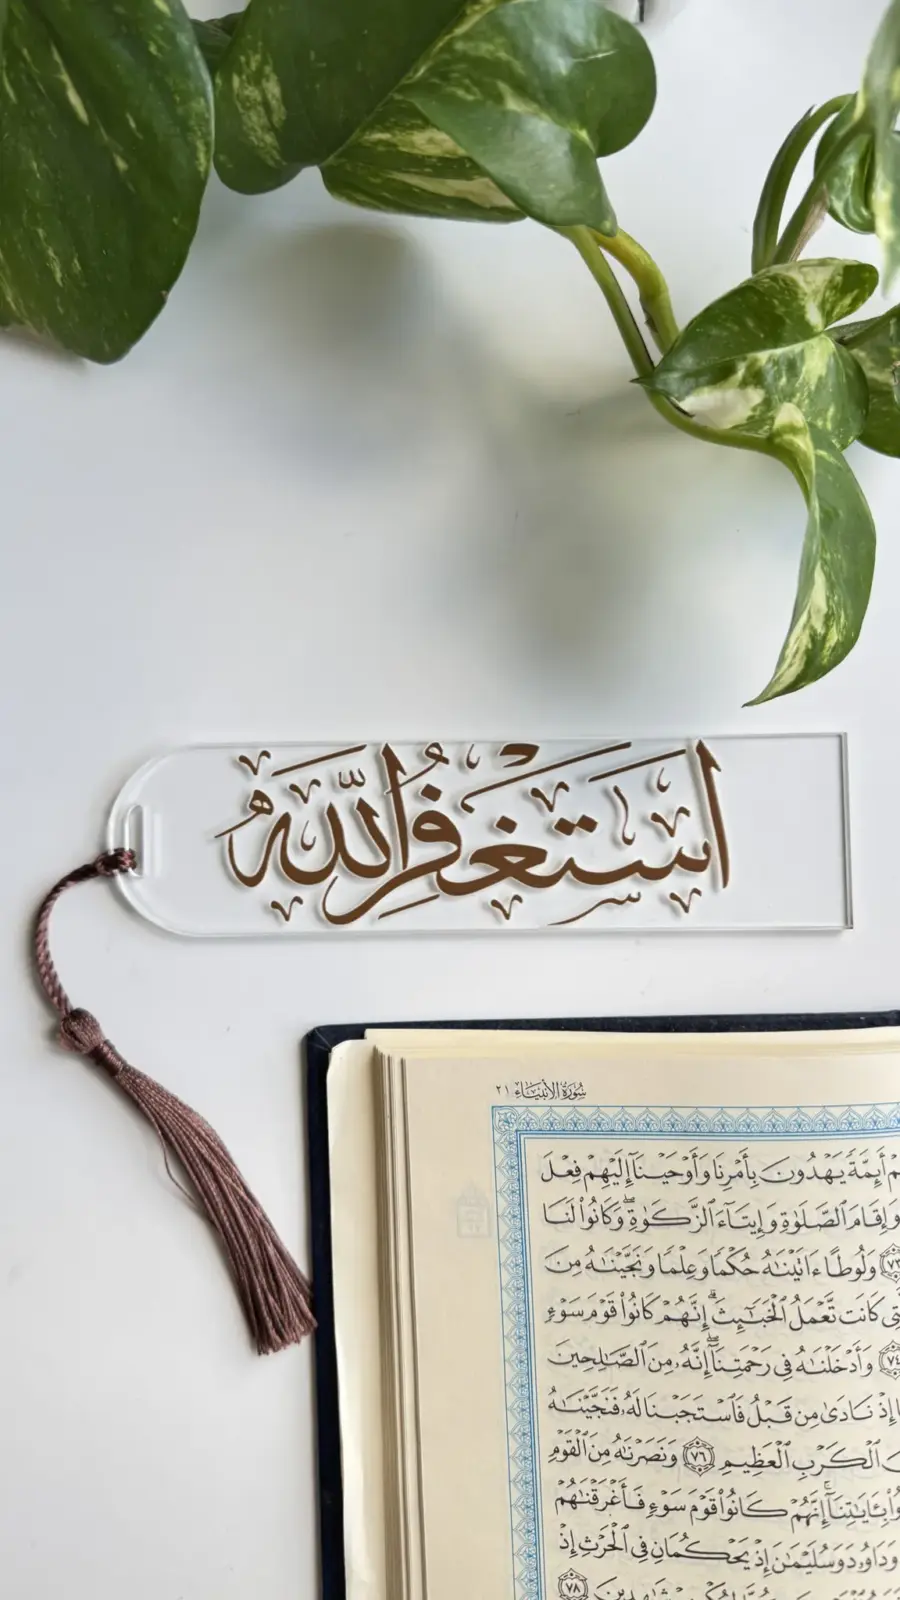 أَسْتَغْفِرُ اللَّه
سُورَةُ الأَنبِيَاءِ ٢١
أَئِمَّةً يَهْدُونَ بِأَمْرِنَا وَأَوْحَيْنَآ إِلَيْهِمْ فِعْلَ
وَإِقَامَ ٱلصَّلَوٰةِ وَإِيتَآءَ ٱلزَّكَوٰةِ ۖ وَكَانُوا۟ لَنَا
٧٣ وَلُوطًا ءَاتَيْنَٰهُ حُكْمًا وَعِلْمًا وَنَجَّيْنَٰهُ مِنَ
كَانَت تَّعْمَلُ ٱلْخَبَٰٓئِثَ ۗ إِنَّهُمْ كَانُوا۟ قَوْمَ سَوْءٍ
٧٤ وَأَدْخَلْنَٰهُ فِى رَحْمَتِنَآ ۖ إِنَّهُۥ مِنَ ٱلصَّٰلِحِينَ
إِذْ نَادَىٰ مِن قَبْلُ فَٱسْتَجَبْنَا لَهُۥ فَنَجَّيْنَٰهُ
ٱلْكَرْبِ ٱلْعَظِيمِ ٧٦ وَنَصَرْنَٰهُ مِنَ ٱلْقَوْمِ
بِـَٔايَٰتِنَآ ۚ إِنَّهُمْ كَانُوا۟ قَوْمَ سَوْءٍ فَأَغْرَقْنَٰهُمْ
وَدَاوُۥدَ وَسُلَيْمَٰنَ إِذْ يَحْكُمَانِ فِى ٱلْحَرْثِ إِذْ
٧٨